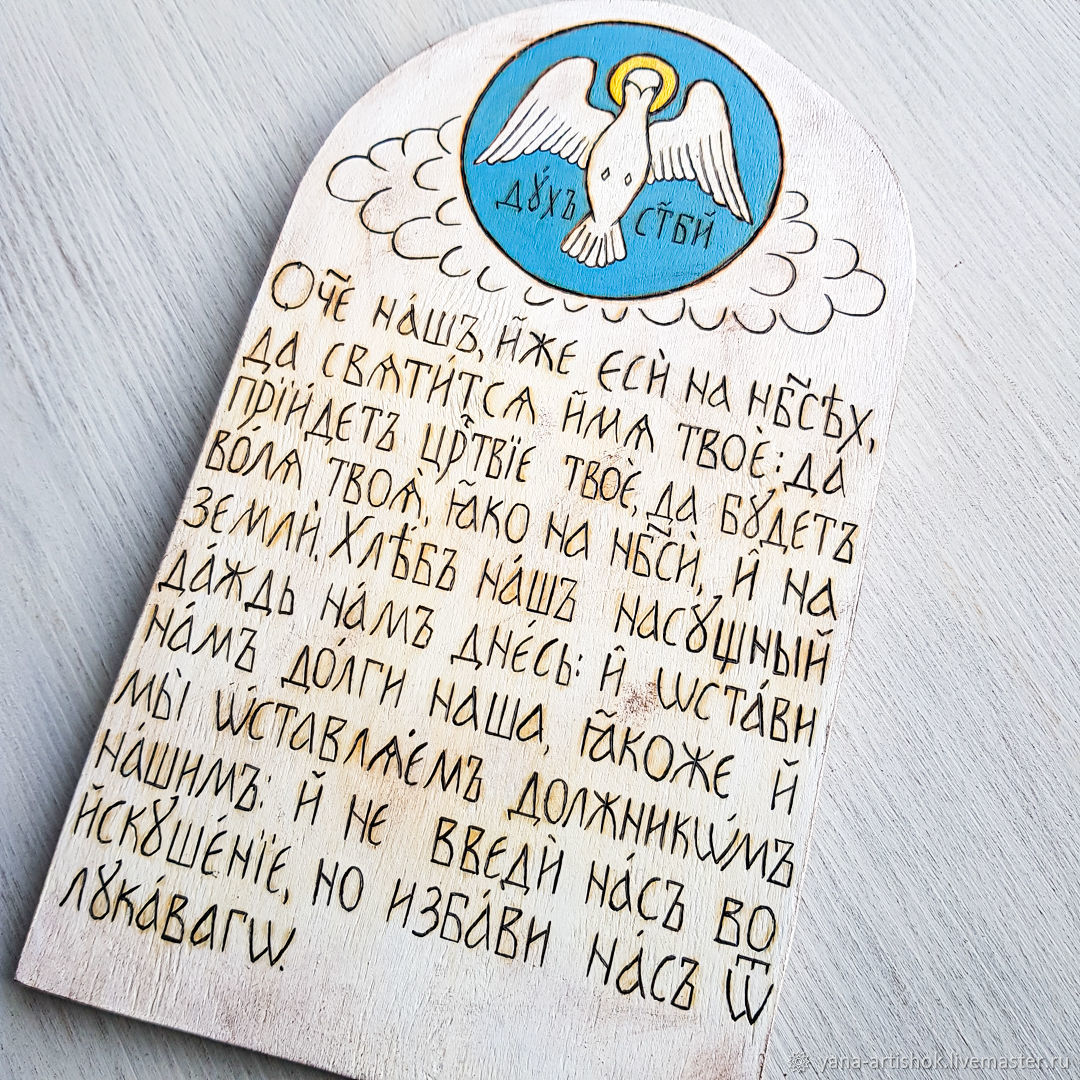 дꙋ́хъ ст҃ы́й
Оч҃е на́шъ, и҆́же є҆сѝ на нб҃сѣ́хъ,
да свѧти́тсѧ и҆́мѧ твоѐ: да
прїи́детъ црⷭ҇твїе твоѐ, да бꙋ́детъ
во́лѧ твоѧ̀, ꙗ҆́кѡ на нб҃сѝ, и҆ на
землѝ. Хлѣ́бъ на́шъ насꙋ́щный
да́ждь на́мъ дне́сь: и҆ ѡ҆ста́ви
на́мъ до́лги наша, ꙗ҆́коже и҆
мы̀ ѡ҆ставлѧ́емъ должникѡ́мъ
на́шимъ: и҆ не введѝ на́съ во
и҆скꙋше́нїе, но избави на́съ ѿ
лꙋка́вагѡ.
yana-artishok.livemaster.ru